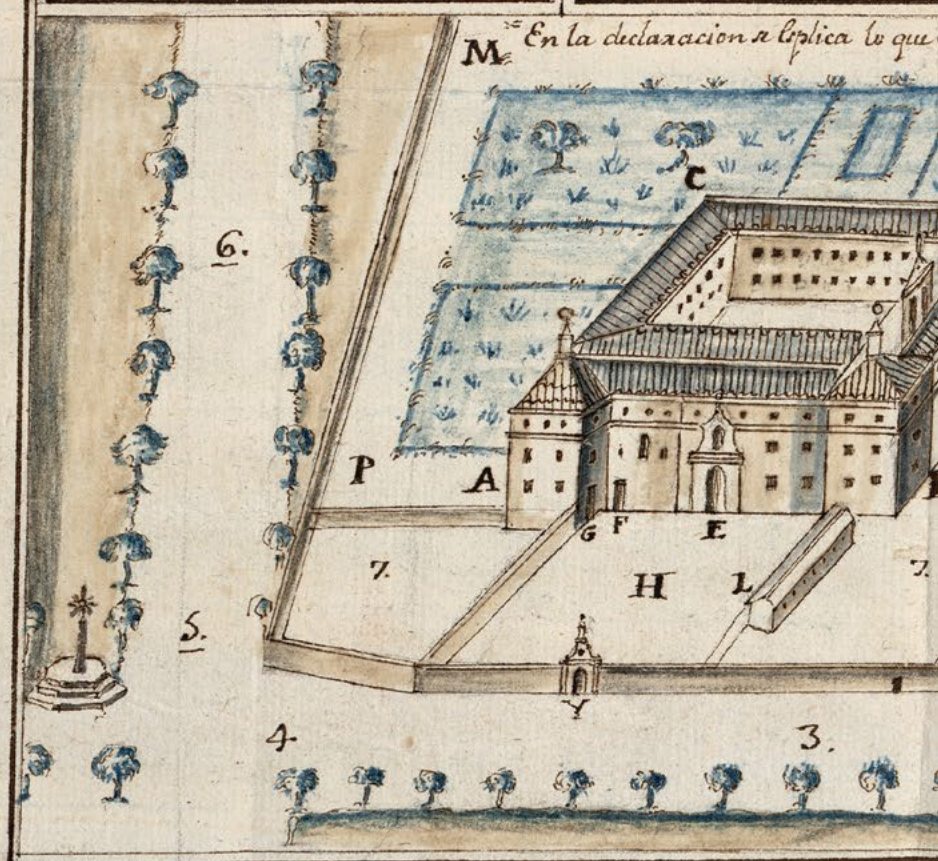 M. En la declaracion se esplica lo que
C
6.
P
A
G F E
7.
H
L
7.
5.
Y
4.
3.